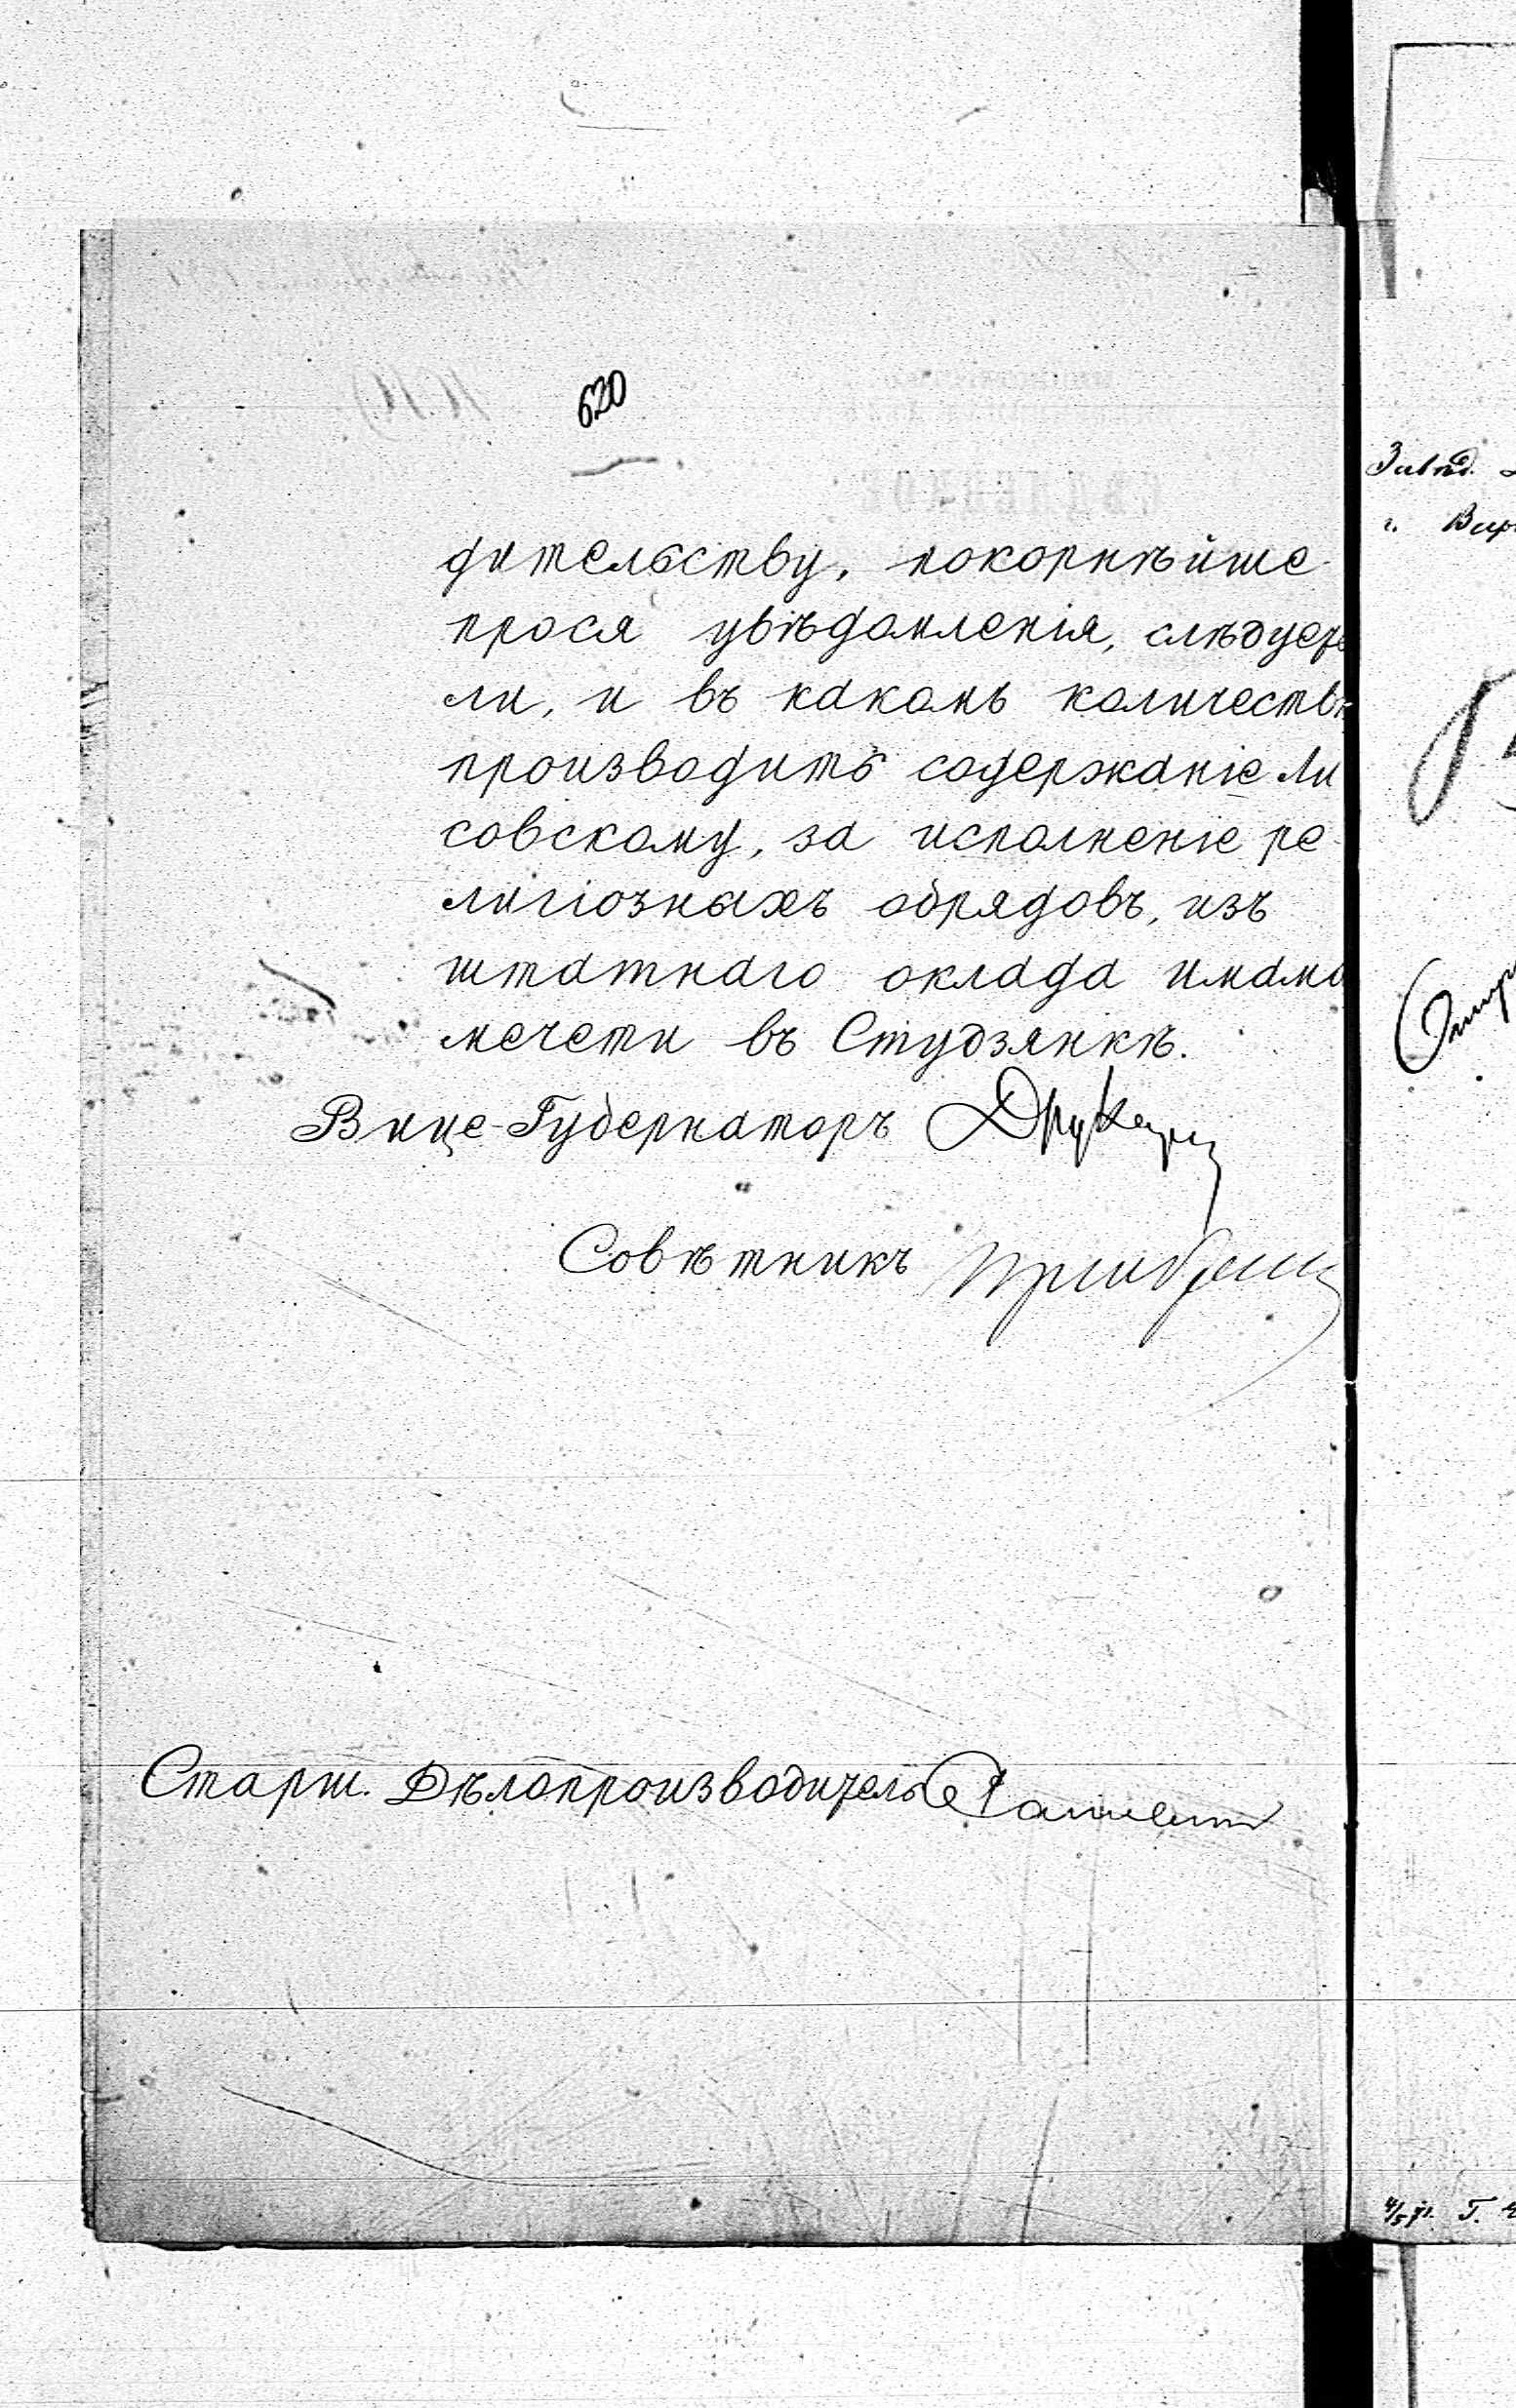 620
дительству, покорнѣйше
прося увѣдомленія, слѣдуетъ
ли, и въ какомъ количествѣ
производить содержаніе Ли
совскому, за исполненіе ре-
лигіозныхъ обрядовъ, изъ
штатнаго оклада имама
мечети въ Студзянкѣ.
Вице-Губернаторъ
Совѣтникъ
Старш. Дѣлопроизводитель
Завѣд.
г.